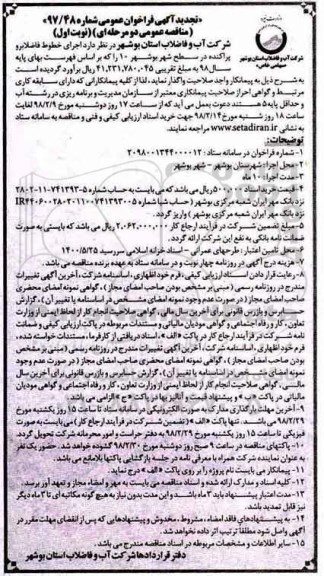 «تجدید آگهی فراخوان عمومی شماره ۹۷/۴۸»
(مناقصه عمومی دو مرحله‌ای) (نوبت اول)
شرکت آب و فاضلاب استان بوشهر در نظر دارد اجرای خطوط فاضلابرو
پراکنده در سطح شهر بوشهر ۱۰ را که بر اساس فهرست بهای پایه
سال ۹۸ به مبلغ تقریبی ۴۱,۲۳۱,۷۸۰,۰۴۵ ریال برآورد گردیده است
به شرح ذیل به پیمانکار واجد صلاحیت واگذار نماید، لذا از کلیه پیمانکارانی که دارای سابقه کاری
مرتبط و گواهی احراز صلاحیت پیمانکاری معتبر از سازمان مدیریت و برنامه ریزی در رشته آب
و حداقل پایه ۵ هستند دعوت بعمل می آید که از ساعت ۱۷ روز دوشنبه مورخ ۹۸/۲/۹ لغایت
ساعت ۱۸ روز شنبه مورخ ۹۸/۲/۱۴ جهت خرید اسناد ارزیابی کیفی و فنی و مناقصه به سامانه ستاد
به نشانی www.setadiran.ir مراجعه نمایند.
توضیحات:
۱- شماره فراخوان در سامانه ستاد: ۲۰۹۸۰۰۱۳۴۴۰۰۰۰۱۲
۲- محل اجرا: شهرستان بوشهر – شهر بوشهر
۳- مدت اجرا: ۱۰ ماه
۴- قیمت خرید اسناد ۵۰۰,۰۰۰ ریال می باشد که می بایست به حساب شماره
نزد بانک مهر ایران شعبه مرکزی بوشهر (حساب شبا شماره
نزد بانک مهر ایران شعبه مرکزی بوشهر) واریز گردد.
۵- مبلغ تضمین شرکت در فرآیند ارجاع کار ۲,۰۶۲,۰۰۰,۰۰۰ ریال می باشد که بایستی به صورت
ضمانت نامه بانکی به نفع این شرکت ارائه گردد.
۶- محل تامین اعتبار: طرحهای عمرانی – اسناد خزانه اسلامی سررسید ۱۴۰۰/۵/۲۵
۷- هزینه درج آگهی در روزنامه چهار نوبت و در سامانه ستاد به عهده برنده مناقصه می باشد.
۸- رعایت قرار دادن اسناد ارزیابی کیفی، فرم خود اظهاری، اساسنامه شرکت، آخرین آگهی تغییرات
مندرج در روزنامه رسمی (مبنی بر مشخص بودن صاحب امضای مجاز)، گواهی نمونه امضای محضری
صاحب امضای مجاز (در صورت عدم وجود نمونه امضای مشخص در اساسنامه یا تغییر آن)، گزارش
حسابرس و بازرس قانونی برای آخرین سال مالی، گواهی صلاحیت انجام کار از لحاظ ایمنی از وزارت
تعاون، کار و رفاه اجتماعی و گواهی مودیان مالیاتی و مستندات مربوطه در پاکت ارزیابی کیفی و ضمانت
نامه شرکت در فرآیند ارجاع کار در پاکت «الف»، اسناد دریافتی از کارفرما، مستندات خواسته شده،
فرم خود اظهاری، اساسنامه شرکت، آخرین آگهی تغییرات مندرج در روزنامه رسمی (مبنی بر مشخص
بودن صاحب امضای مجاز)، گواهی نمونه امضای محضری صاحب امضای مجاز (در صورت عدم وجود
نمونه امضای مشخص در اساسنامه یا تغییر آن)، گزارش حسابرس و بازرس قانونی برای آخرین سال
مالی، گواهی صلاحیت انجام کار از لحاظ ایمنی از وزارت تعاون، کار و رفاه اجتماعی و گواهی مودیان
مالیاتی در پاکت «ب» و پیشنهاد قیمت و آنالیز بها در پاکت «ج» الزامی می باشد.
۹- آخرین مهلت بارگذاری مدارک به صورت الکترونیکی در سامانه ستاد تا ساعت ۱۵ روز یکشنبه مورخ
۹۸/۲/۲۹ می باشد. تنها پاکت «الف» (تضمین شرکت در فرآیند ارجاع کار) می بایست به صورت
فیزیکی تا ساعت ۱۵ روز یکشنبه مورخ ۹۸/۲/۲۹ به دفتر حراست و امور محرمانه شرکت تحویل گردد.
۱۰- پاکتهای مناقصه در ساعت ۹ صبح روز دوشنبه مورخ ۹۸/۲/۳۰ گشوده خواهد شد. حضور یک نفر
به عنوان نماینده شرکت همراه با معرفی نامه در جلسه بازگشایی پاکتها بلامانع می باشد.
۱۱- پیمانکار می بایست نام پروژه را بر روی پاکت «الف» درج نماید.
۱۲- کلیه اسناد و مدارک ارائه شده و اسناد مناقصه می بایست به مهر و امضاء مجاز و تعهد آور برسد.
۱۳- مدت اعتبار پیشنهاد باید ۳ ماه باشد و این مدت بدون نیاز به هیچ گونه مکاتبه ای تا ۳ ماه دیگر
نیز قابل تمدید باشد.
۱۴- به پیشنهادهای فاقد امضاء، مشروط، مخدوش و پیشنهادهایی که پس از انقضای مهلت مقرر در
آگهی واصل شود مطلقا ترتیب اثر داده نخواهد شد.
۱۵- سایر اطلاعات و مشخصات مربوطه در اسناد مناقصه مندرج می باشد.
دفتر قراردادها شرکت آب و فاضلاب استان بوشهر